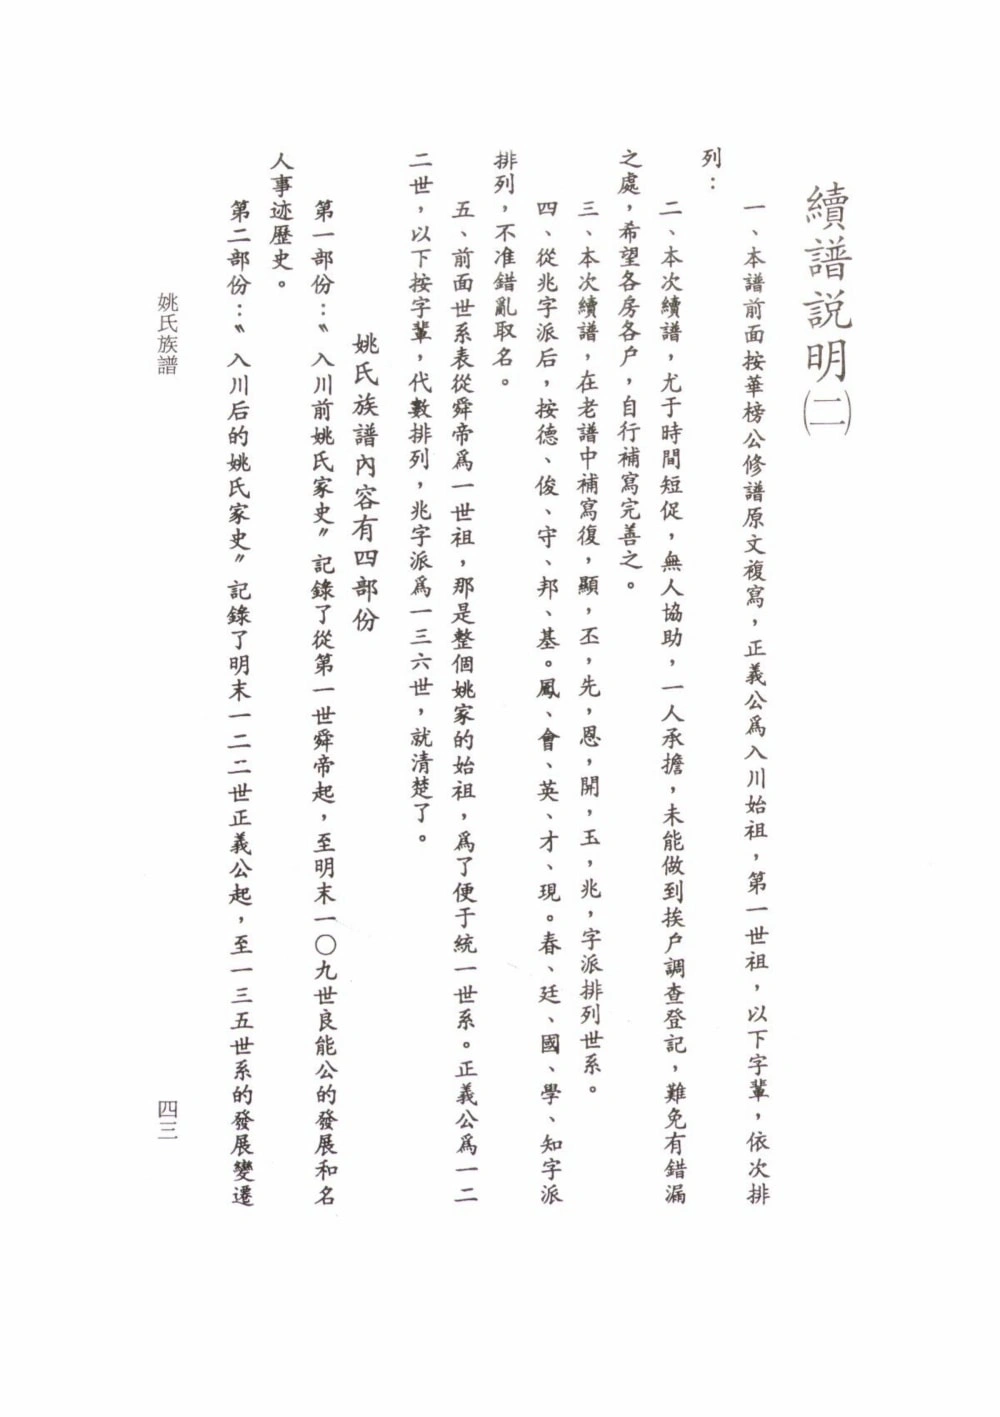 續譜説明㈡
一、本譜前面按華榜公修譜原文複寫，正義公爲入川始祖，第一世祖，以下字輩，依次排
列：
二、本次續譜，尤于時間短促，無人協助，一人承擔，未能做到挨户調查登記，難免有錯漏
之處，希望各房各户，自行補寫完善之。
三、本次續譜，在老譜中補寫復，顯，丕，先，恩，開，玉，兆，字派排列世系。
四、從兆字派后，按德、俊、守、邦、基。鳳、會、英、才、現。春、廷、國、學、知字派
排列，不准錯亂取名。
五、前面世系表從舜帝爲一世祖，那是整個姚家的始祖，爲了便于統一世系。正義公爲一二
二世，以下按字輩，代數排列，兆字派爲一三六世，就清楚了。
姚氏族譜內容有四部份
第一部份：〝入川前姚氏家史〞記錄了從第一世舜帝起，至明末一〇九世良能公的發展和名
人事迹歷史。
第二部份：〝入川后的姚氏家史〞記錄了明末一二二世正義公起，至一三五世系的發展變遷
姚氏族譜
四三